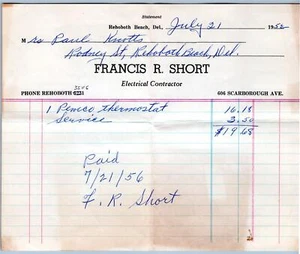 Statement
Rehoboth Beach, Del., July 21 1956
Mrs Paul Knotts
Rodney St, Rehoboth Beach, Del.
FRANCIS R. SHORT
Electrical Contractor
PHONE REHOBOTH 606 SCARBOROUGH AVE.
1 Penco thermostat 16.18
Service 3.50
$19.68
Paid
7/21/56
F. R. Short